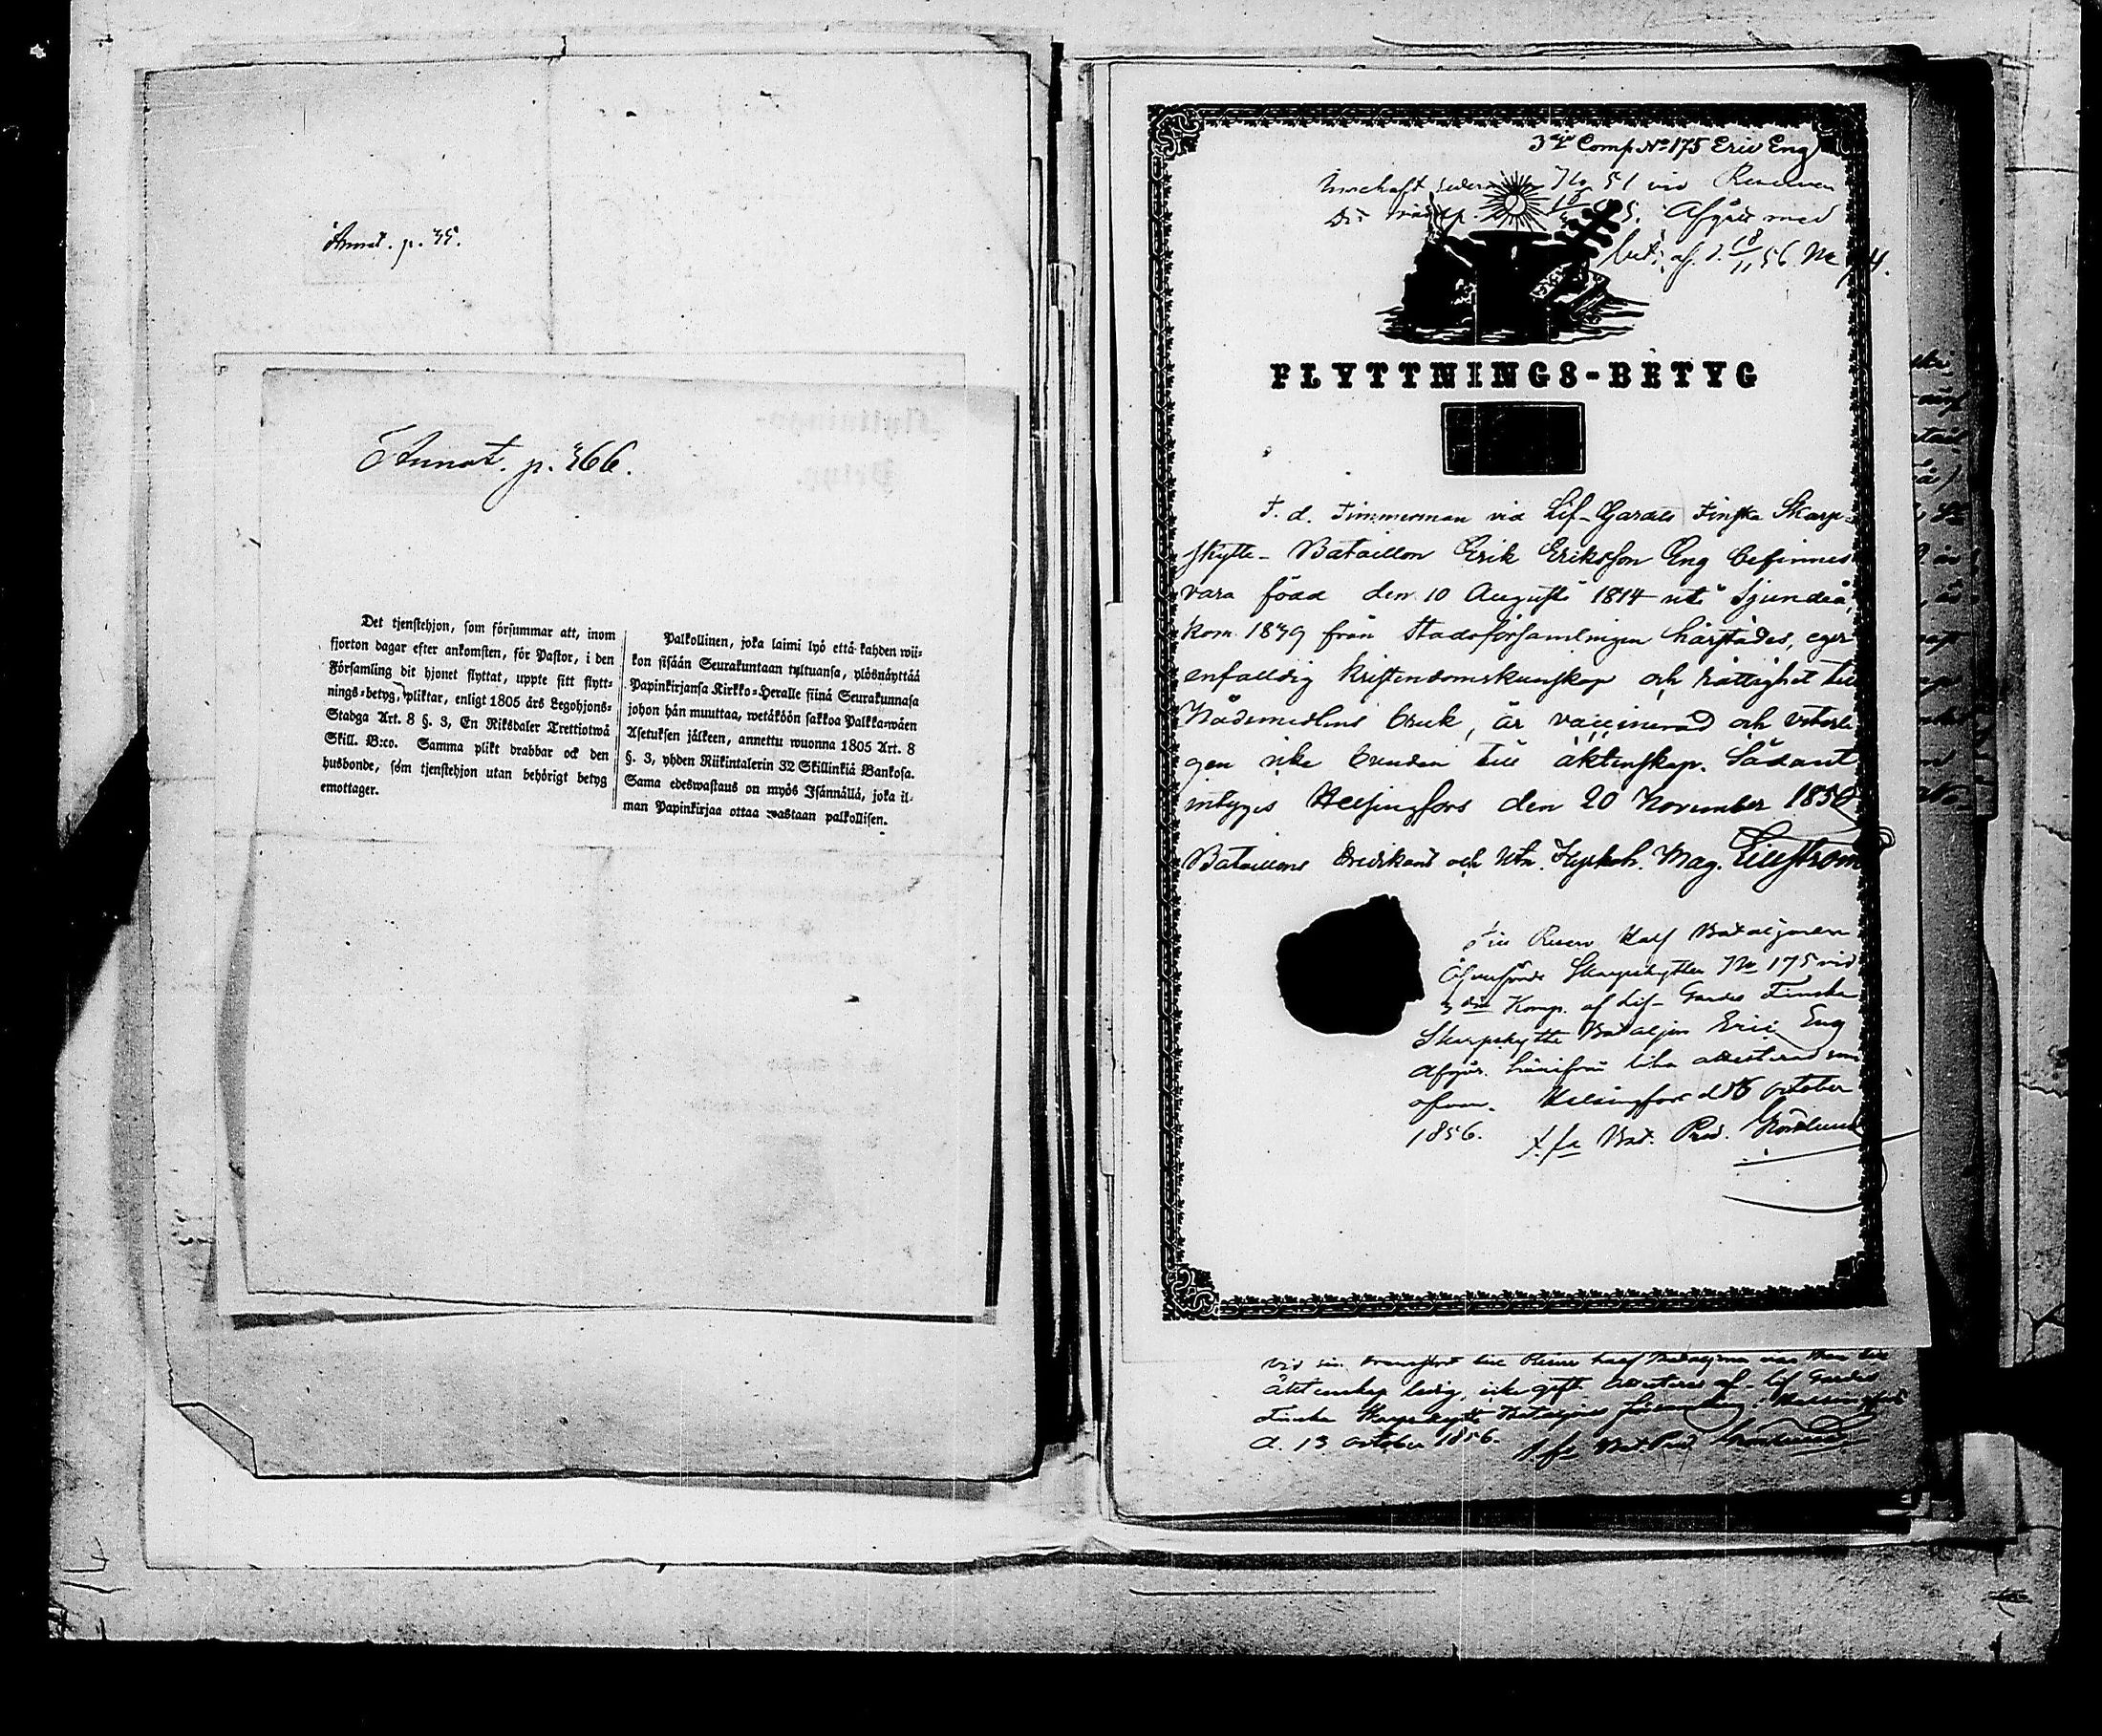 Annot. p. 35.
Annot. p. 366.
Det tjenstehjon, som försummar att, inom
fjorton dagar efter ankomsten, för Pastor, i den
Församling dit hjonet flyttat, uppte sitt flytt-
nings-betyg, pliktar, enligt 1805 års Legohjons-
Stadga Art. 8 §. 3, En Riksdaler Trettiotwå
Skill. B:co. Samma plikt drabbar ock den
husbonde, som tjenstehjon utan behörigt betyg
emottager.
Palkollinen, joka laimi lyö että kahden wii-
kon sisään Seurakuntaan tultuansa, ylösnäyttää
Papinkirjansa Kirkko-Herralle siinä Seurakunnasa
johon hän muuttaa, wetäköön sakkoa Palkkawäen
Asetuksen jälkeen, annettu wuonna 1805 Art. 8
§. 3, yhden Riikintalerin 32 Skillinkiä Bankosa.
Sama edeswastaus on myös Isännällä, joka il-
man Papinkirjaa ottaa wastaan palkollisen.
3dje Comp No 175 Eric Eng
No 51 vid Reserven
Afgått med
bet. af d. 18/11 56. No
FLYTTNINGS-BETYG
F. d. Timmerman vid Lif-Gardes Finska Skarp-
skytte-Bataillon Erik Eriksson Eng befinnes
vara född den 10 Augusti 1814 uti Sjundeå,
kom 1839 från Stadsförsamlingen härstädes, eger
enfaldig kristendomskunskap och rättighet till
Nådemedlens bruk, är vaccinerad och veterli
gen icke bunden till äktenskap. Sådant
intygas Helsingfors den 20 November 1850
Bataillons Predikant och Utn. Kyrkoh. Mag. Lillström
Till Reserv Half Bataljonen
öfverförde Skarpskytten No 175 vid
3dje Komp. af Lif-Gardes Finska
Skarpskytte Bataljon Eric Eng
afgår härifrån lika attesterad som
ofvan. Helsingfors d. 13 October
1856. t. f. Bat. Pred.
Vid sin transport till Reserv half Bataljonen var Man till
äktenskap ledig, icke gift. Attesteras af Lif Gardes
Finska Skarpskytte Bataljons församling. Helsingfors
d. 13 October 1856. t. f. Bat Pred.